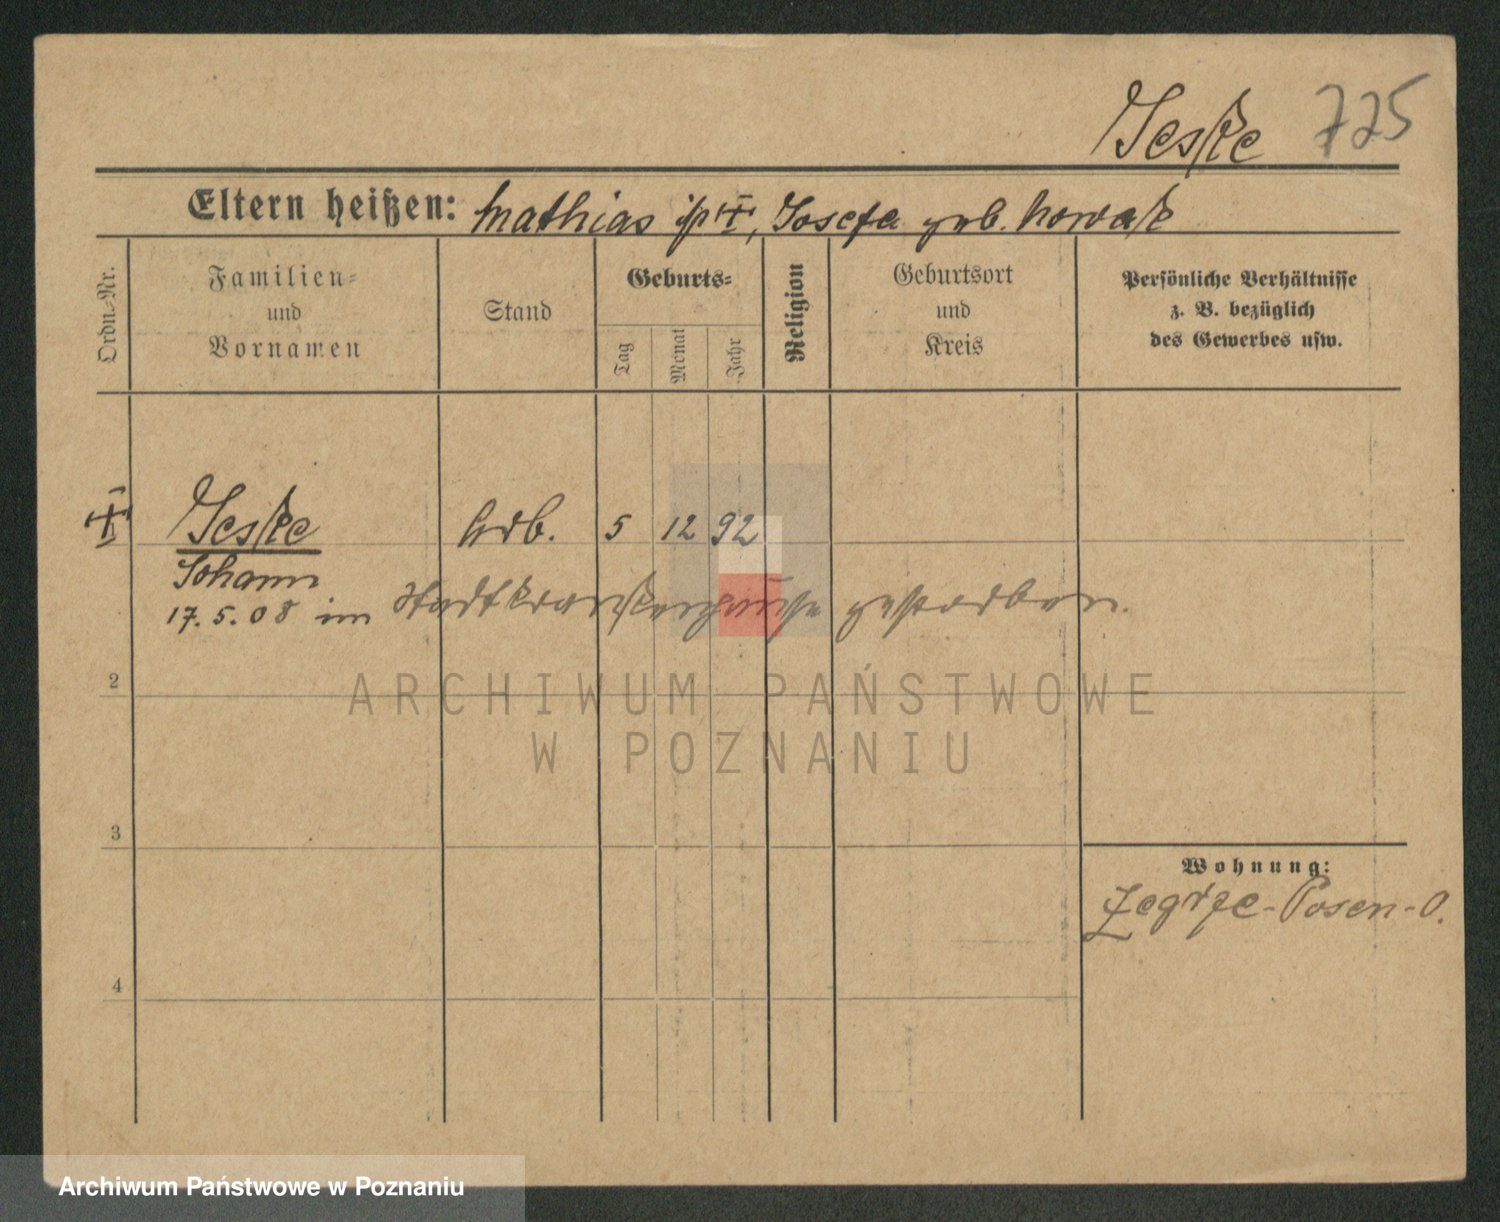 Jeske 725
Eltern heißen: Mathias ist ‡, Josefa geb. Nowak
Ordn.-Nr.
Familien-
und
Vornamen
Stand
Geburts-
Tag
Monat
Jahr
Religion
Geburtsort
und
Kreis
Persönliche Verhältnisse
z. B. bezüglich
des Gewerbes usw.
‡ Jeske Arb. 5 12 92
Johann
17. 5. 08 im Stadtkrankenhause gestorben.
2
ARCHIWUM PAŃSTWOWE
W POZNANIU
3
Wohnung:
Zegrze-Posen-O.
4
Archiwum Państwowe w Poznaniu